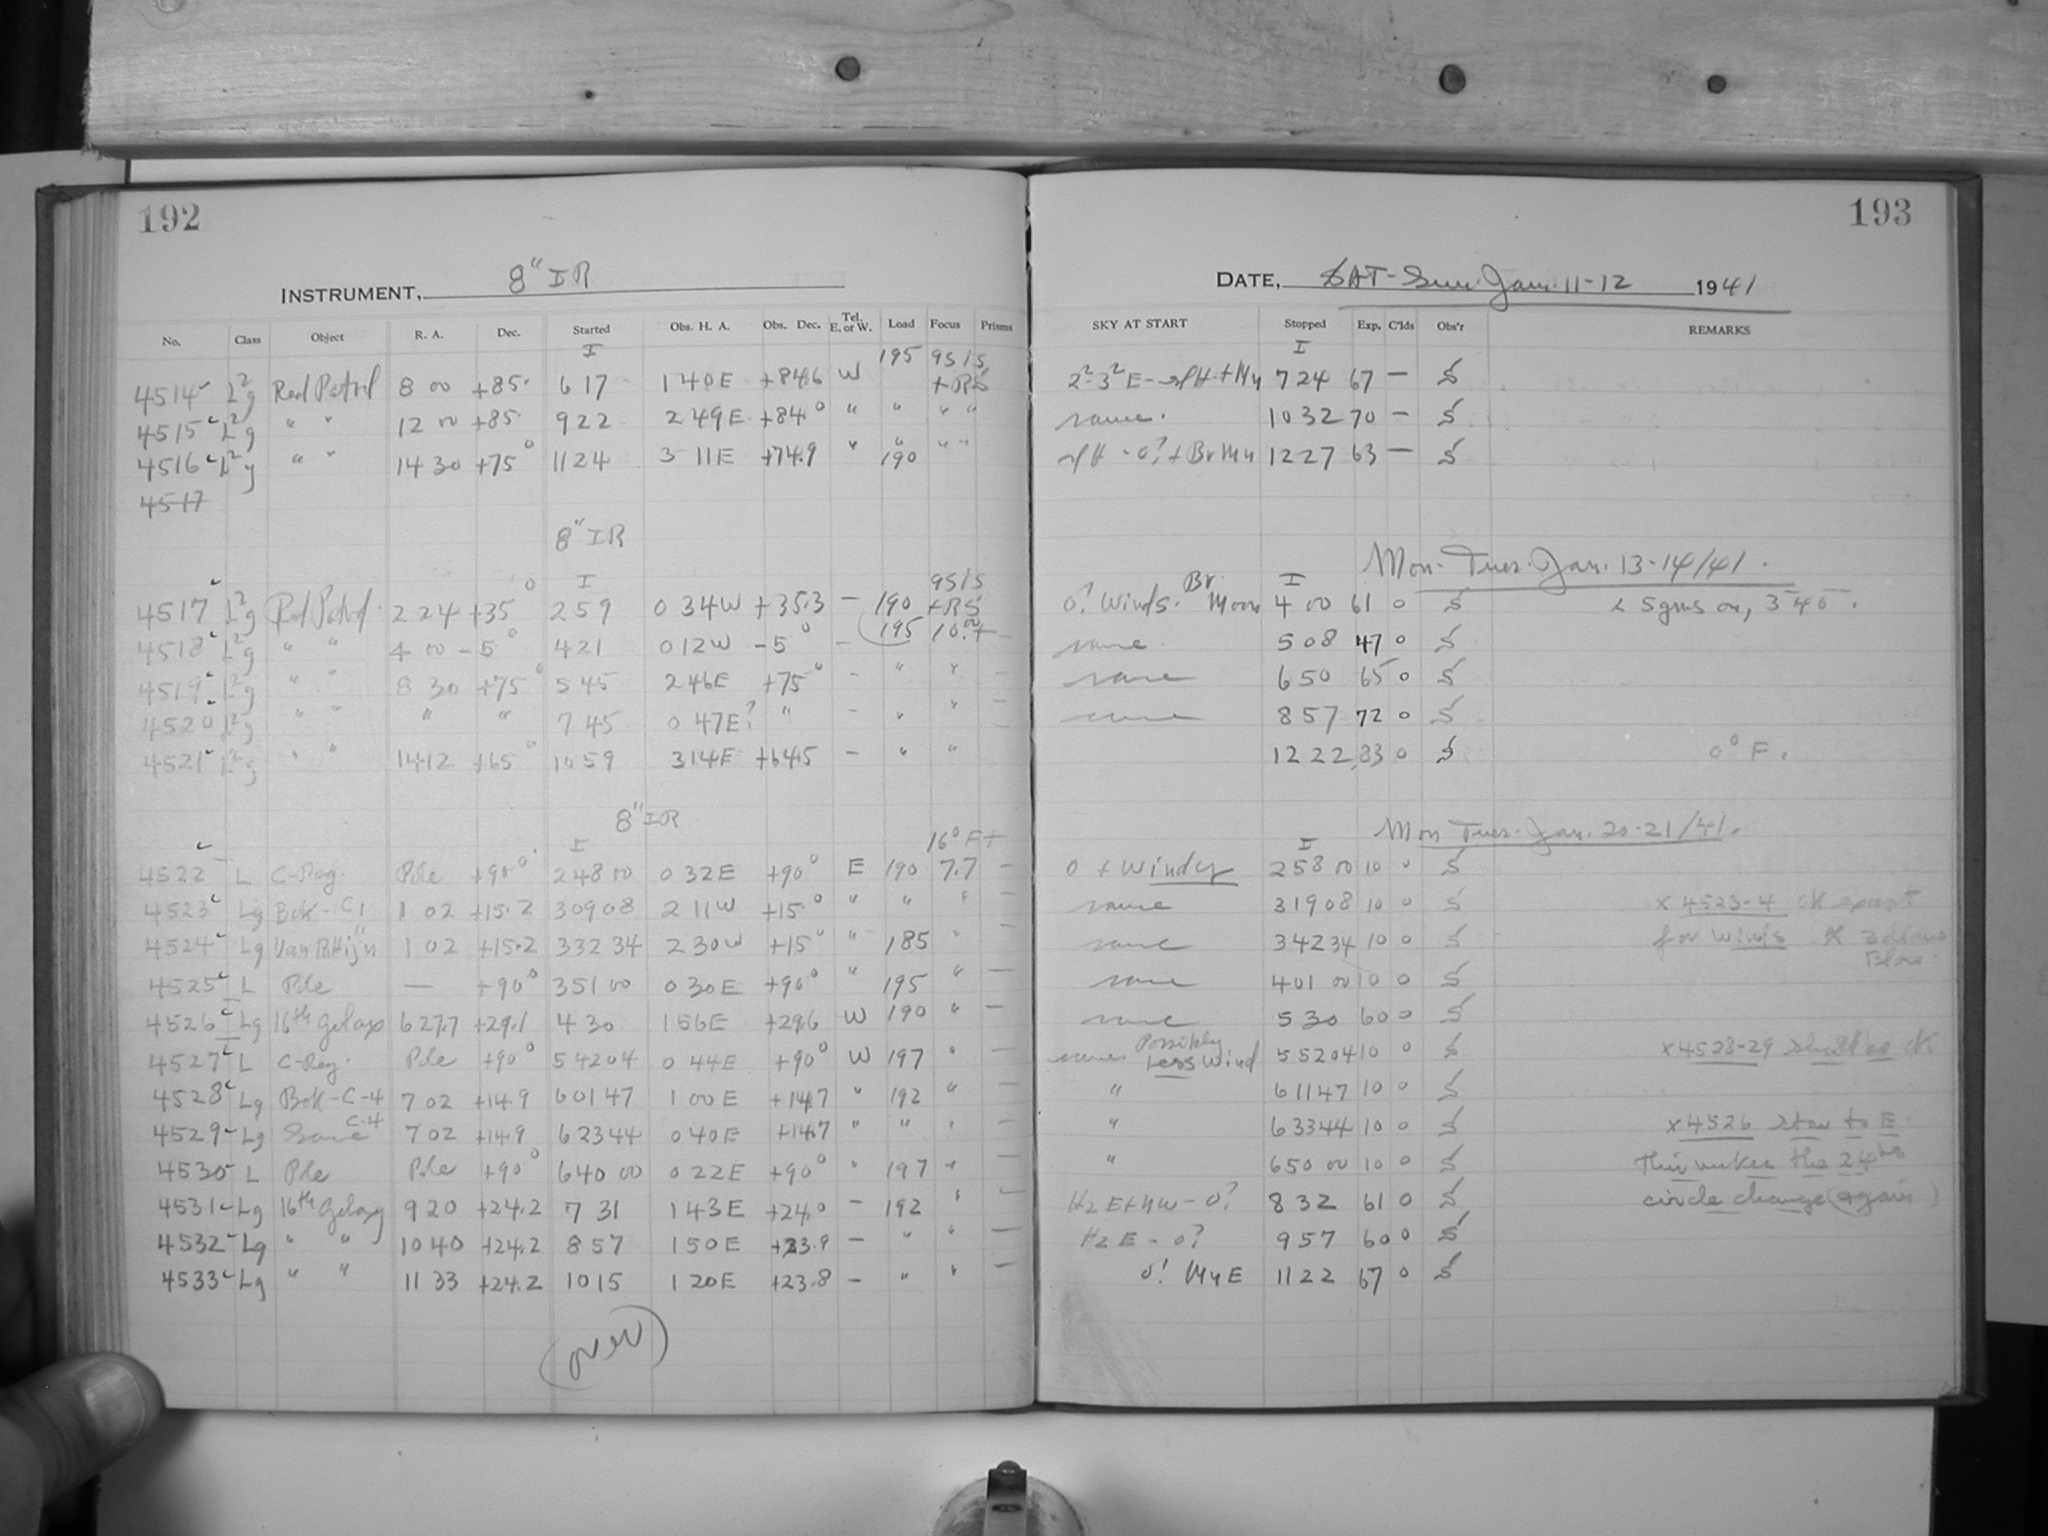 192
193
INSTRUMENT, 8" IR
DATE, SAT-Sun. Jan. 11-12 1941
No. Class Object R. A. Dec. Started Obs. H. A. Obs. Dec. Tel. E. or W. Load Focus Prisms SKY AT START Stopped Exp. C'lds Obs'r REMARKS
I 195 95/5 I
4514 L²g Red Patrol 8 00 +85° 6 17 1 40E +84.6 W +RS 2²-3²E 7 24 67 — S
4515 L²g " " 12 00 +85 9 22 2 49E +84° " " " " same. 10 32 70 — S
4516 L²g " " 14 30 +75° 11 24 3 11E +74.9 " " " " 12 27 63 — S
190
4517
8" IR
Mon-Tues. Jan. 13-14/41.
I 95/5 Br. I
4517 L²g Red Patrol. 2 24 +35° 2 59 0 34W +35.3 — 190 +RS 0? Winds. Moon 4 00 61 0 S
4518 L²g " " 4 00 -5° 4 21 0 12W -5° — 195 same. 5 08 47 0 S
4519 L²g " " 8 30 +75° 5 45 2 46E +75° — " " — same 6 50 65 0 S
4520 L²g " " " " 7 45 0 47E? " — " " — same 8 57 72 0 S
4521 L²g " " 14 12 +65° 10 59 3 14E +64.5 — " " 12 22 83 0 S 0° F.
8" IR
Mon Tues. Jan. 20-21/41.
I 16° F+ I
4522 L C-Reg. Pole +90° 2 48 00 0 32E +90° E 190 7.7 — 0 + Windy 2 58 00 10 0 S
4523 Lg Bok-C1 1 02 +15.2 3 09 08 2 11W +15.° " " " same 3 19 08 10 0 S x 4523-4 OK except
4524 Lg Van Rhijn 1 02 +15.2 33 2 34 2 30W +15° " 185 " same 34 2 34 10 0 S for winds
4525 L Pole — +90° 3 51 00 0 30E +90° " 195 " — same 4 01 00 10 0 S
4526 Lg 16th Galaxy 6 27.7 +29.1 4 30 1 56E +29.6 W 190 " — same 5 30 60 0 S
4527 L C-Reg. Pole +90° 5 42 04 0 44E +90° W 197 " same Possibly Less Wind 5 52 04 10 0 S x 4528-29 OK
4528 Lg Bok-C-4 7 02 +14.9 6 01 47 1 00E +14.7 " 192 " — " 6 11 47 10 0 S
4529 Lg Same C-4 7 02 +14.9 6 23 44 0 40E +14.7 " " " — " 6 33 44 10 0 S x 4526 star to E.
4530 L Pole Pole +90° 6 40 00 0 22E +90° " 197 " — " 6 50 00 10 0 S This makes the 24 hrs
4531 Lg 16th Galaxy 9 20 +24.2 7 31 1 43E +24.0 — 192 " — Hz E+NW - 0? 8 32 61 0 S circle change (again)
4532 Lg " " 10 40 +24.2 8 57 1 50E +23.9 — " " — Hz E - 0? 9 57 60 0 S
4533 Lg " " 11 33 +24.2 10 15 1 20E +23.8 — " " — 0! Mn E 11 22 67 0 S
(over)